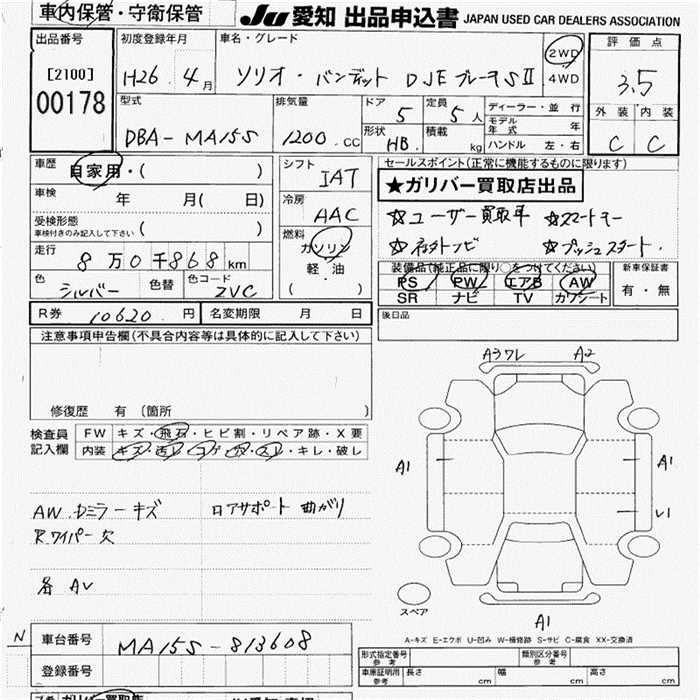 車内保管・守衛保管
JU 愛知 出品申込書 JAPAN USED CAR DEALERS ASSOCIATION
出品番号
[2100]
00178
初度登録年月
H26. 4月
車名・グレード
ソリオ・バンデット DJE ブレーキSⅡ
2WD
4WD
評価点
3.5
外装 内装
C C
型式
DBA-MA15S
排気量
1200.CC
ドア 5
定員 5人
形状 HB
積載 kg
ディーラー・並行
モデル年式 年
ハンドル 左・右
車歴 自家用・( )
車検 年 月( 日)
受検形態
車検付きのみ記入して下さい ( )
走行
8万0千868km
色 シルバー 色替
色コード ZVC
シフト IAT
冷房 AAC
燃料
ガソリン
軽・油
( )
セールスポイント(正常に機能するものに限ります)
★ガリバー買取店出品
☆ユーザー買取車 ☆スマートキー
☆プッシュスタート.
装備品(純正品に限り○をつけてください)
PS PW エアB AW
SR ナビ TV カワシート
新車保証書
有・無
R券 10620.円
名変期限 月 日
後日品
注意事項申告欄(不具合内容等は具体的に記入して下さい)
修復歴 有 (箇所 )
検査員記入欄
FW キズ・飛石・ヒビ割・リペア跡・X要
内装 キズ・汚レ・コゲ・穴・スレ・キレ・破レ
AW.Dミラーキズ ロアサポート 曲がり
R.ワイパー欠
各 AU
A3ワレ A2
A1 A1
U1
スペア
A1
A-キズ E-エクボ U-凹み W-補修跡 S-サビ C-腐食 XX-交換済
N 車台番号 MA15S-813608
登録番号
形式指定番号 参考
類別区分番号 参考
車庫証明用 参考 長さ cm 幅 cm 高さ cm
ガリバー買取店